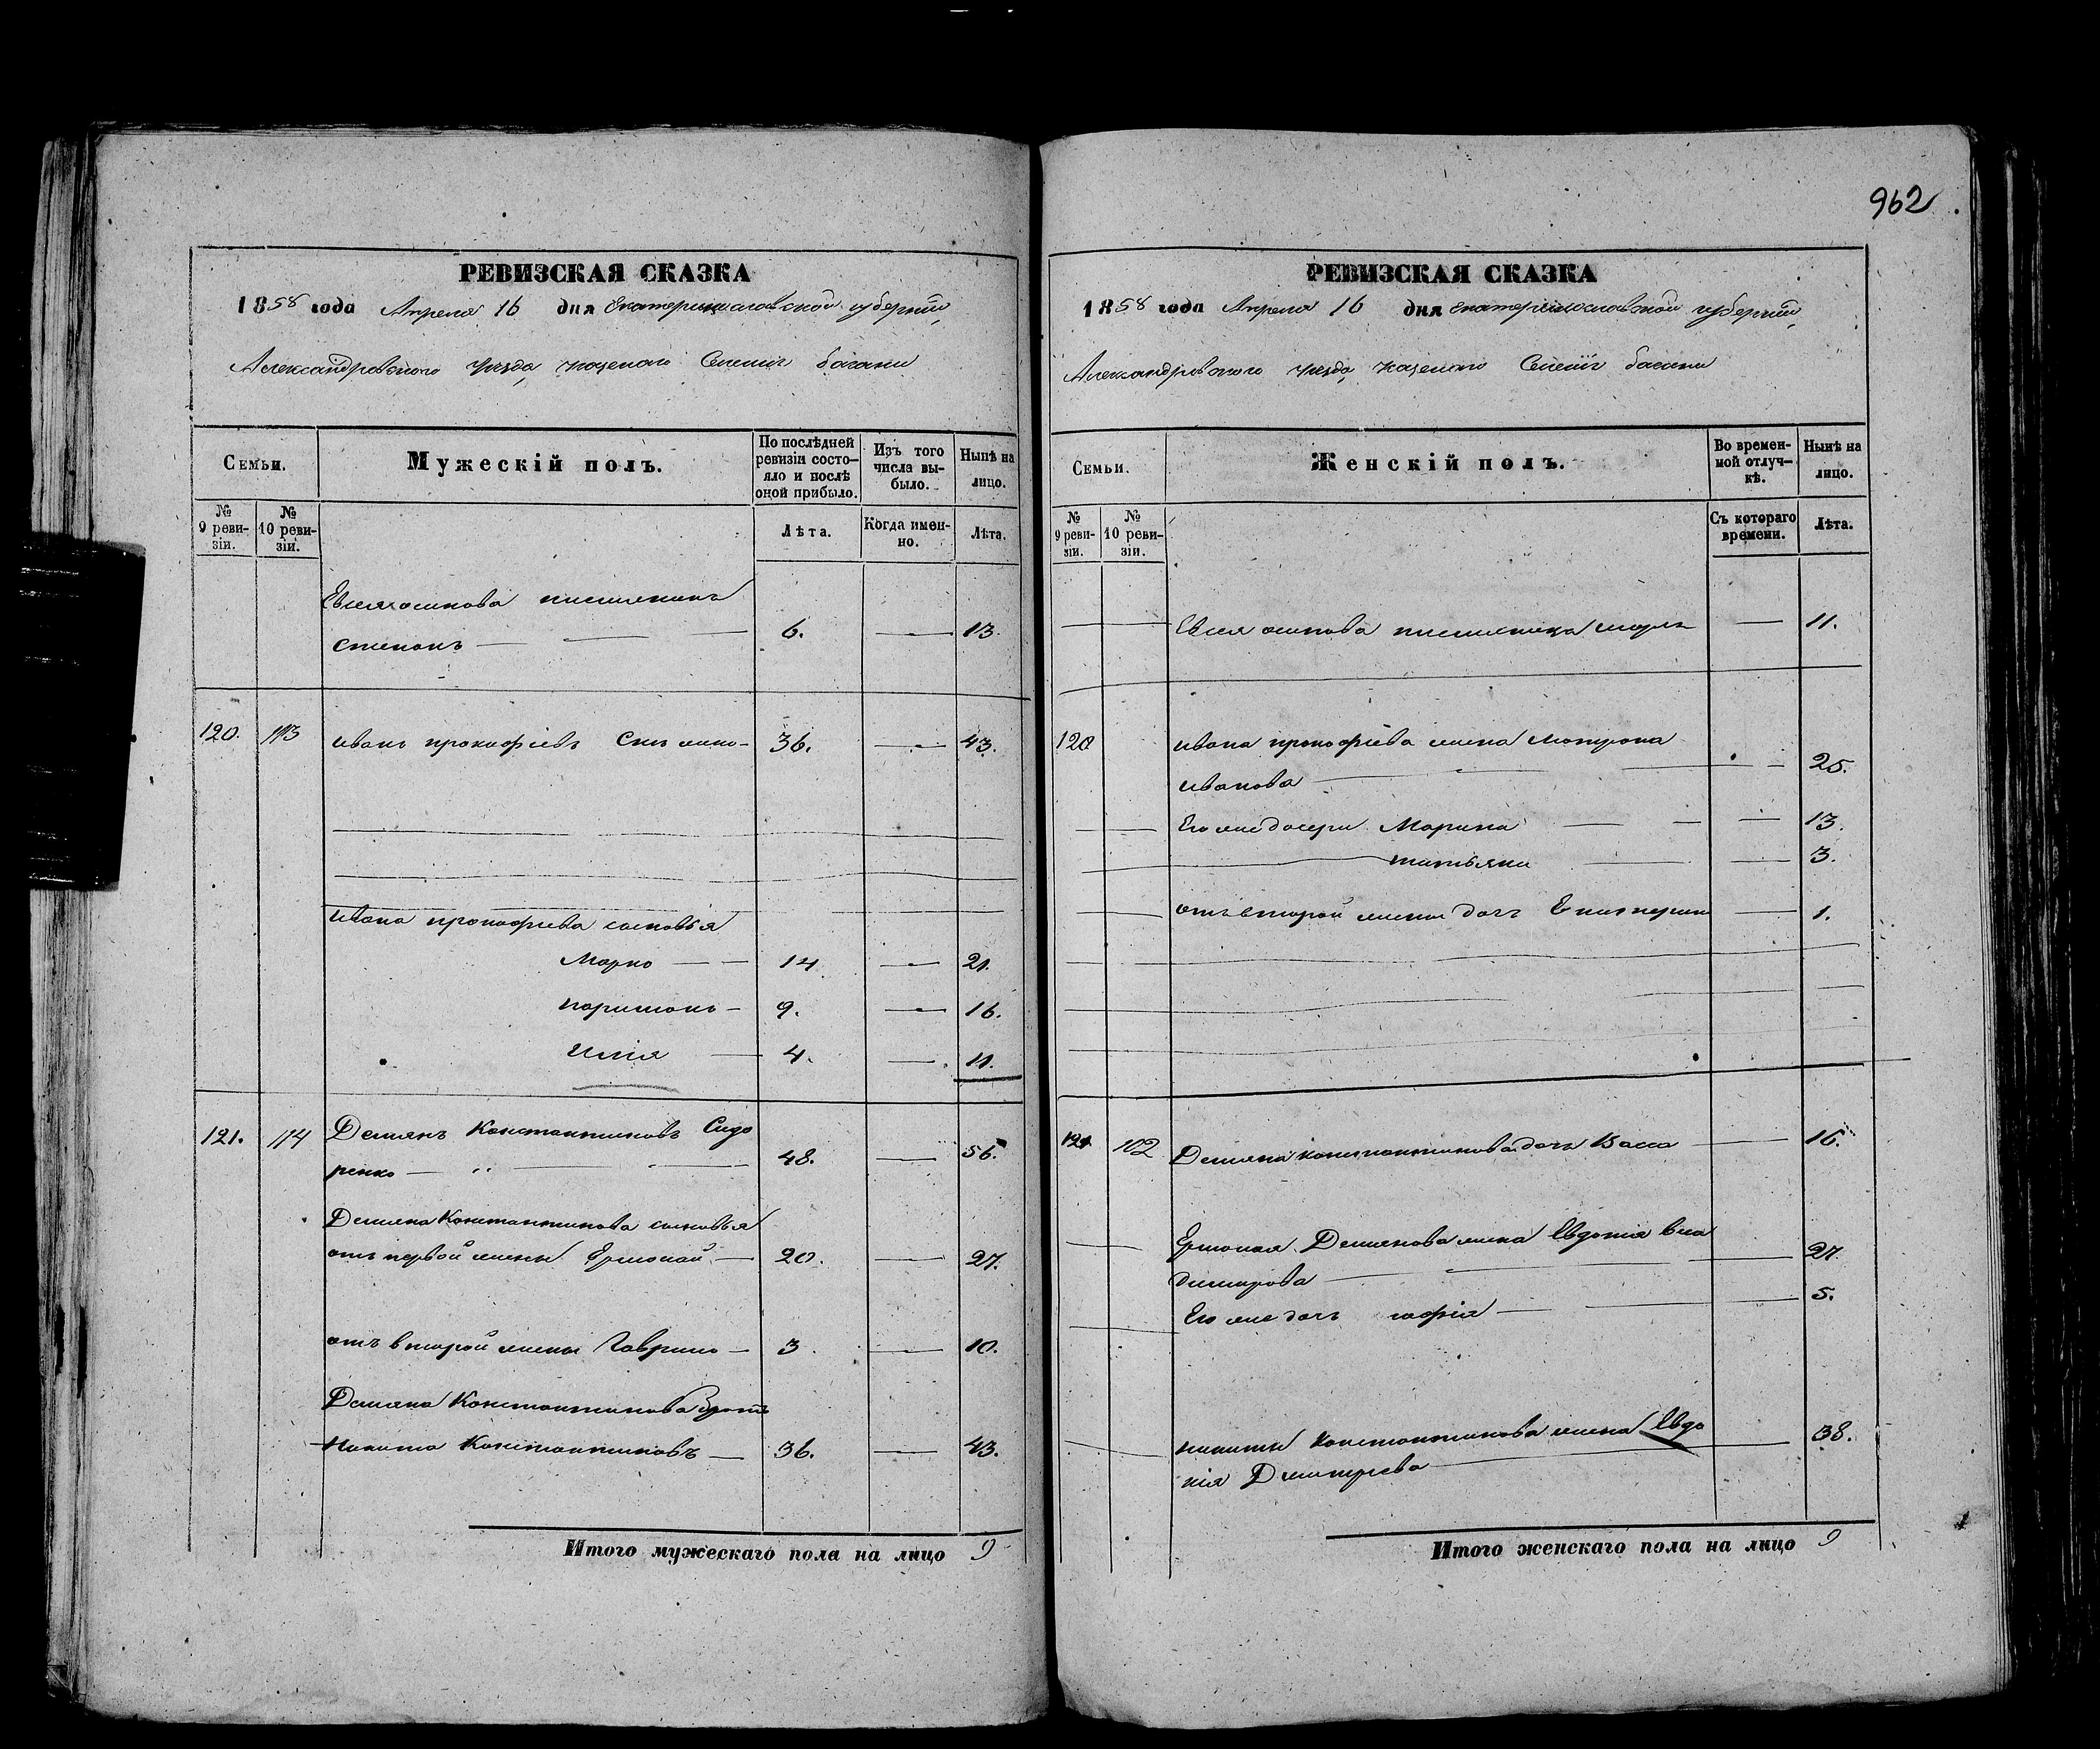 962
РЕВИЗСКАЯ СКАЗКА
1858 года Апреля 16 дня Екатеринославской губернии,
Александровского уезда, казенаго Селенія басани
Семьи.
Мужескій полъ.
По послѣдней ревизіи состо-
яло и послѣ
оной прибыло.
Изъ того
числа вы-
было.
Нынѣ на
лицо.
№
9 реви-
зіи.
№
10 реви-
зіи.
Лѣта.
Когда имен-
но.
Лѣта.
степанъ 6. 13.
120. 113 иванъ прокофіевъ 36. 43.
ивана прокофіева сыновья
Марко 14. 21.
паримонъ 9. 16.
Илія 4. 11.
121. 114 Демянъ Константиновъ Сидо
ренко 48. 56.
Демяна Константинова сыновья
отъ первой жены Ермолай 20. 27.
отъ второй жены Гаврило 3. 10.
Демяна Константинова братъ
Никита Константиновъ 36. 43.
Итого мужескаго пола на лицо 9
РЕВИЗСКАЯ СКАЗКА
1858 года Апреля 16 дня екатеринославской губернии,
Александровского уезда, казенаго Селеніи басани
Семьи.
Женскій полъ.
Во времен-
ной отлуч-
кѣ.
Нынѣ на
лицо.
№
9 реви-
зіи.
№
10 реви-
зіи.
Съ котораго
времени.
Лѣта.
осипова 11.
120 ивана прокофіева жена Мотрона
иванова 25.
Его же дочери Марина 13.
татьяна 3.
отъ второй жены дочь Екатерина 1.
121 102 Демяна константинова дочь Васса 16.
Ермолая Демянова жена Евдокія вла
димирова 27.
Его же дочь софія 5.
никиты Константинова жена Евдо
кія Дмитрева 38.
Итого женскаго пола на лицо 9